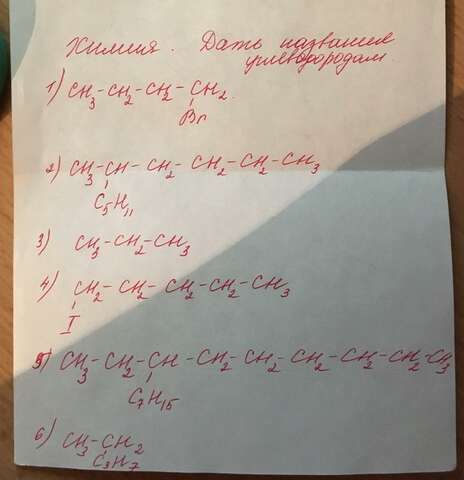 Химия. Дать названия
углеводородам.
1) CH₃-CH₂-CH₂-CH₂.
Br
2) CH₃-CH-CH₂-CH₂-CH₂-CH₃
C₅H₁₁
3) CH₃-CH₂-CH₃
4) CH₂-CH₂-CH₂-CH₂-CH₃
I
5) CH₃-CH₂-CH-CH₂-CH₂-CH₂-CH₂-CH₂-CH₃
C₇H₁₅
6) CH₃-CH₂
C₃H₇